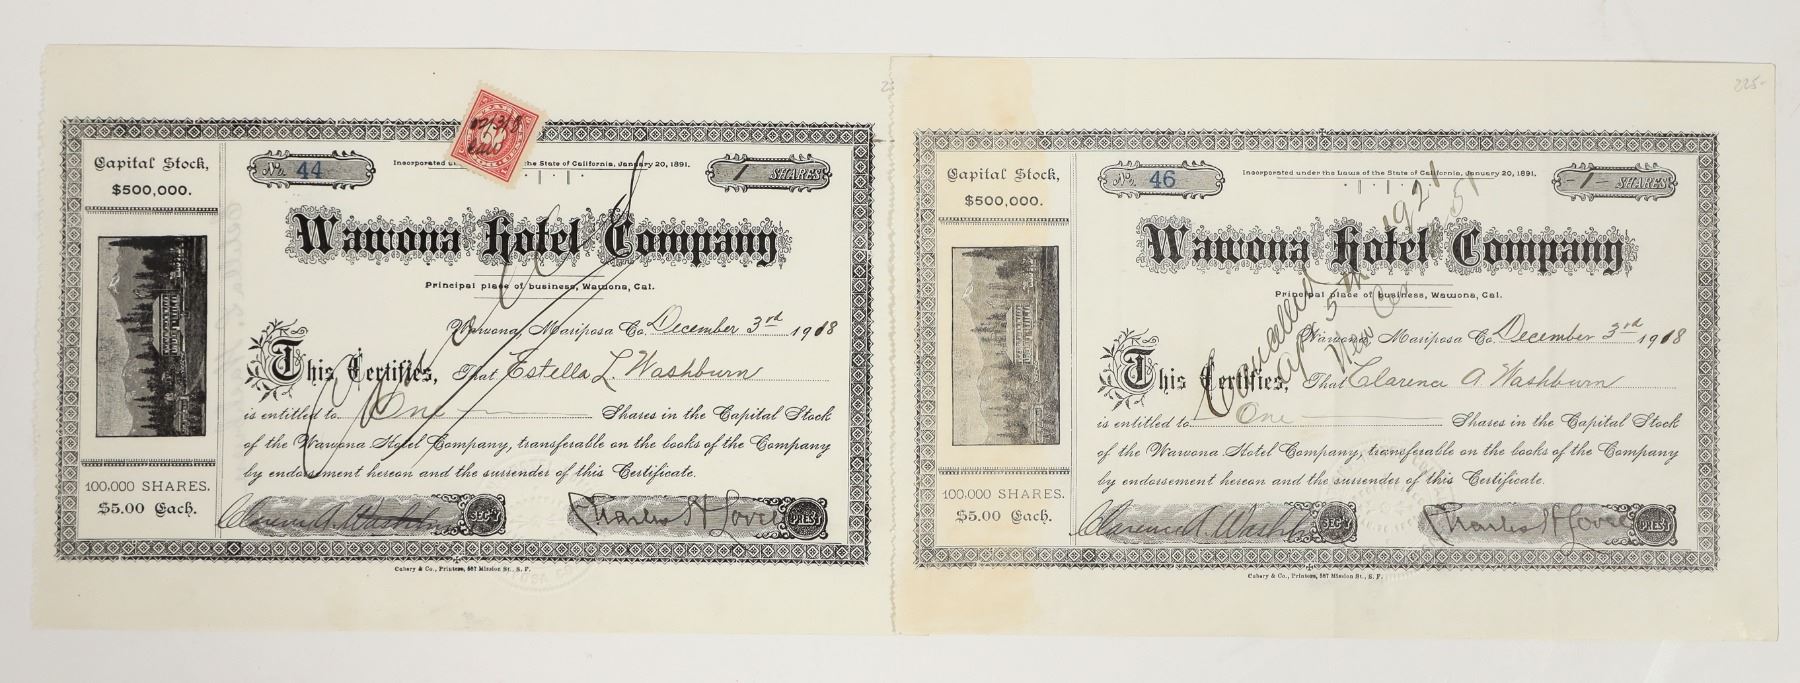 Capital Stock,
$500,000.
No. 44
Incorporated u the State of California, January 20, 1891.
1 SHARES
Wawona Hotel Company
Principal place of business, Wawona, Cal.
Wawona, Mariposa Co. December 3rd 1918
This Certifies, That Estella L. Washburn
is entitled to One Shares in the Capital Stock
of the Wawona Hotel Company, transferable on the books of the Company
by endorsement hereon and the surrender of this Certificate.
100,000 SHARES.
$5.00 Each.
Clarence A. Washburn SEC'Y
Charles H Lovell PRES'T
Cubery & Co., Printers, 587 Mission St., S. F.
Cancelled
225-
Capital Stock,
$500,000.
No. 46
Incorporated under the Laws of the State of California, January 20, 1891.
-1- SHARES
Wawona Hotel Company
Principal place of business, Wawona, Cal.
Wawona, Mariposa Co. December 3rd 1918
This Certifies, That Clarence A. Washburn
is entitled to One Shares in the Capital Stock
of the Wawona Hotel Company, transferable on the books of the Company
by endorsement hereon and the surrender of this Certificate.
100,000 SHARES.
$5.00 Each.
Clarence A. Washb SEC'Y
Charles H Lovell PRES'T
Cubery & Co., Printers, 587 Mission St., S. F.
Cancelled
Apr 5th 1921
New 51